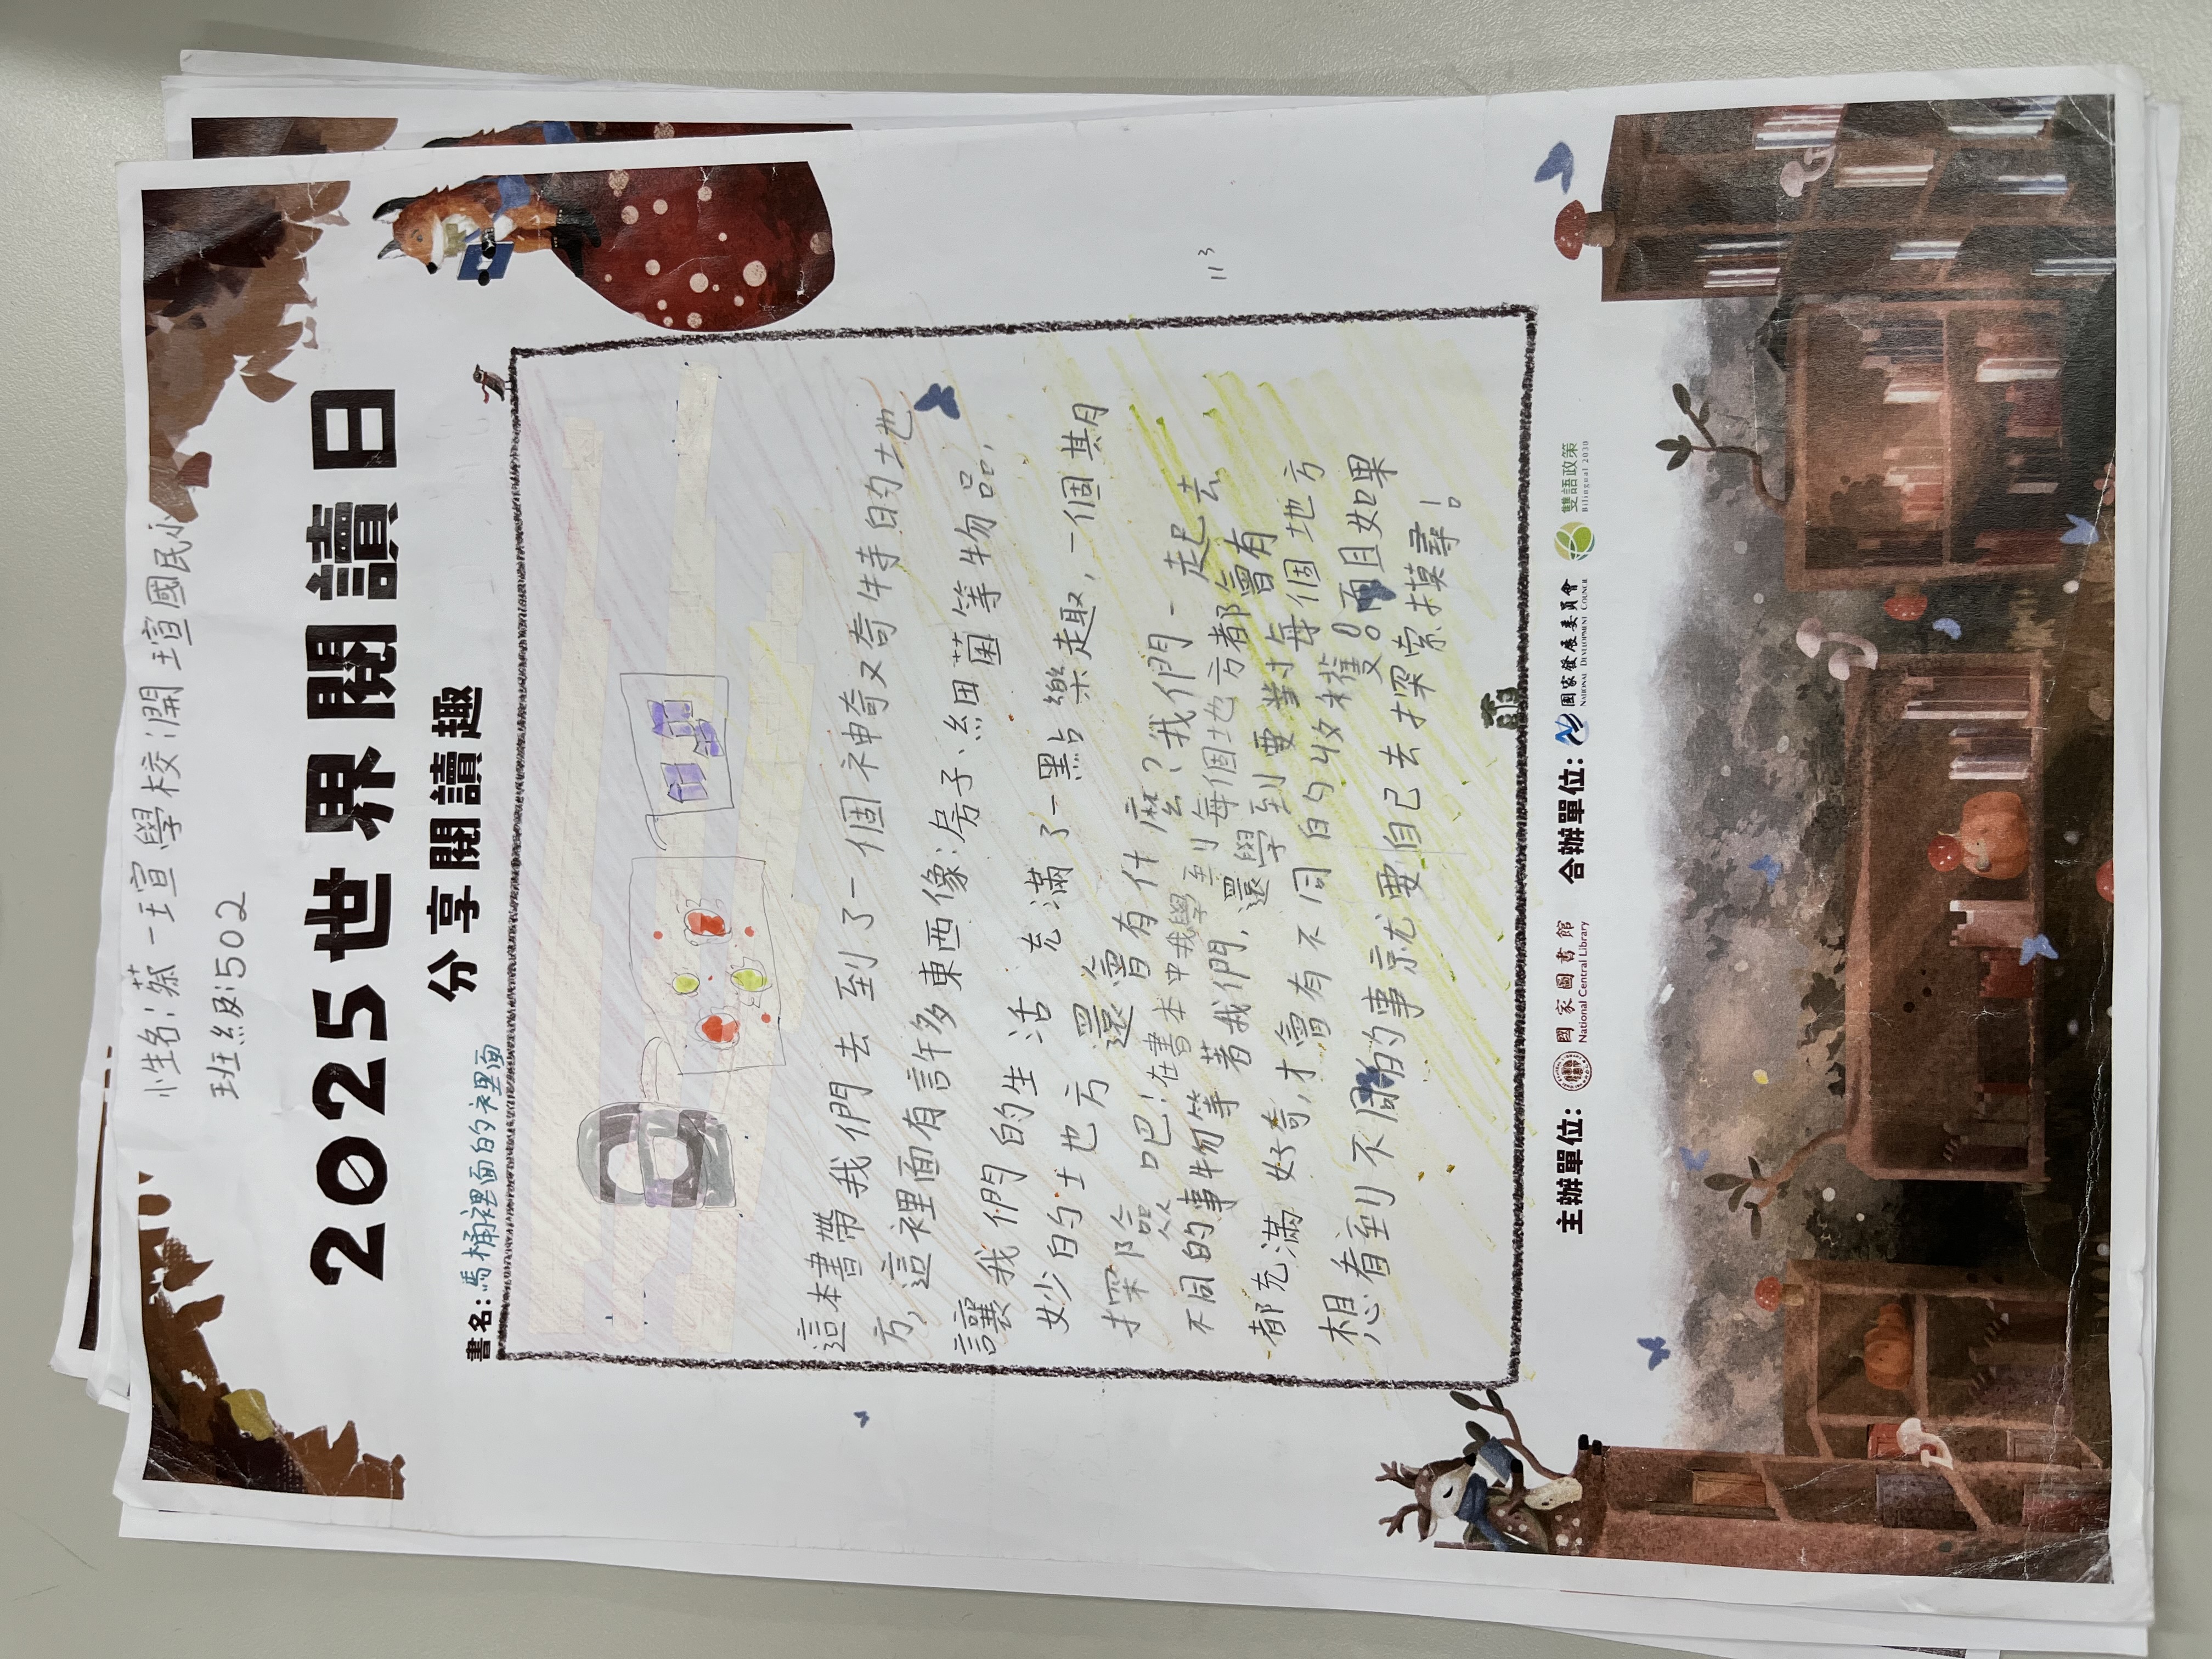 姓名:蔡一瑄學校:開瑄國民小
班級:502
2025世界閱讀日
分享閱讀趣
書名:馬桶裡面的裡面
這本書帶我們去到了一個神奇又奇特的地
方,這裡面有許多東西像:房子、細菌等物品,
讓我們的生活充滿了一點樂趣,一個奇
妙的地方還會有什麼?我們一起去
探險吧!在書本中我學到每個地方都會有
不同的事物等著我們,還學到要對每個地方
都充滿好奇,才會有不同的收穫。而且如果
想看到不同的事就要自己去探索摸尋!
113
主辦單位: 國家圖書館 合辦單位: 國家發展委員會 雙語政策
National Central Library NATIONAL DEVELOPMENT COUNCIL Bilingual 2030